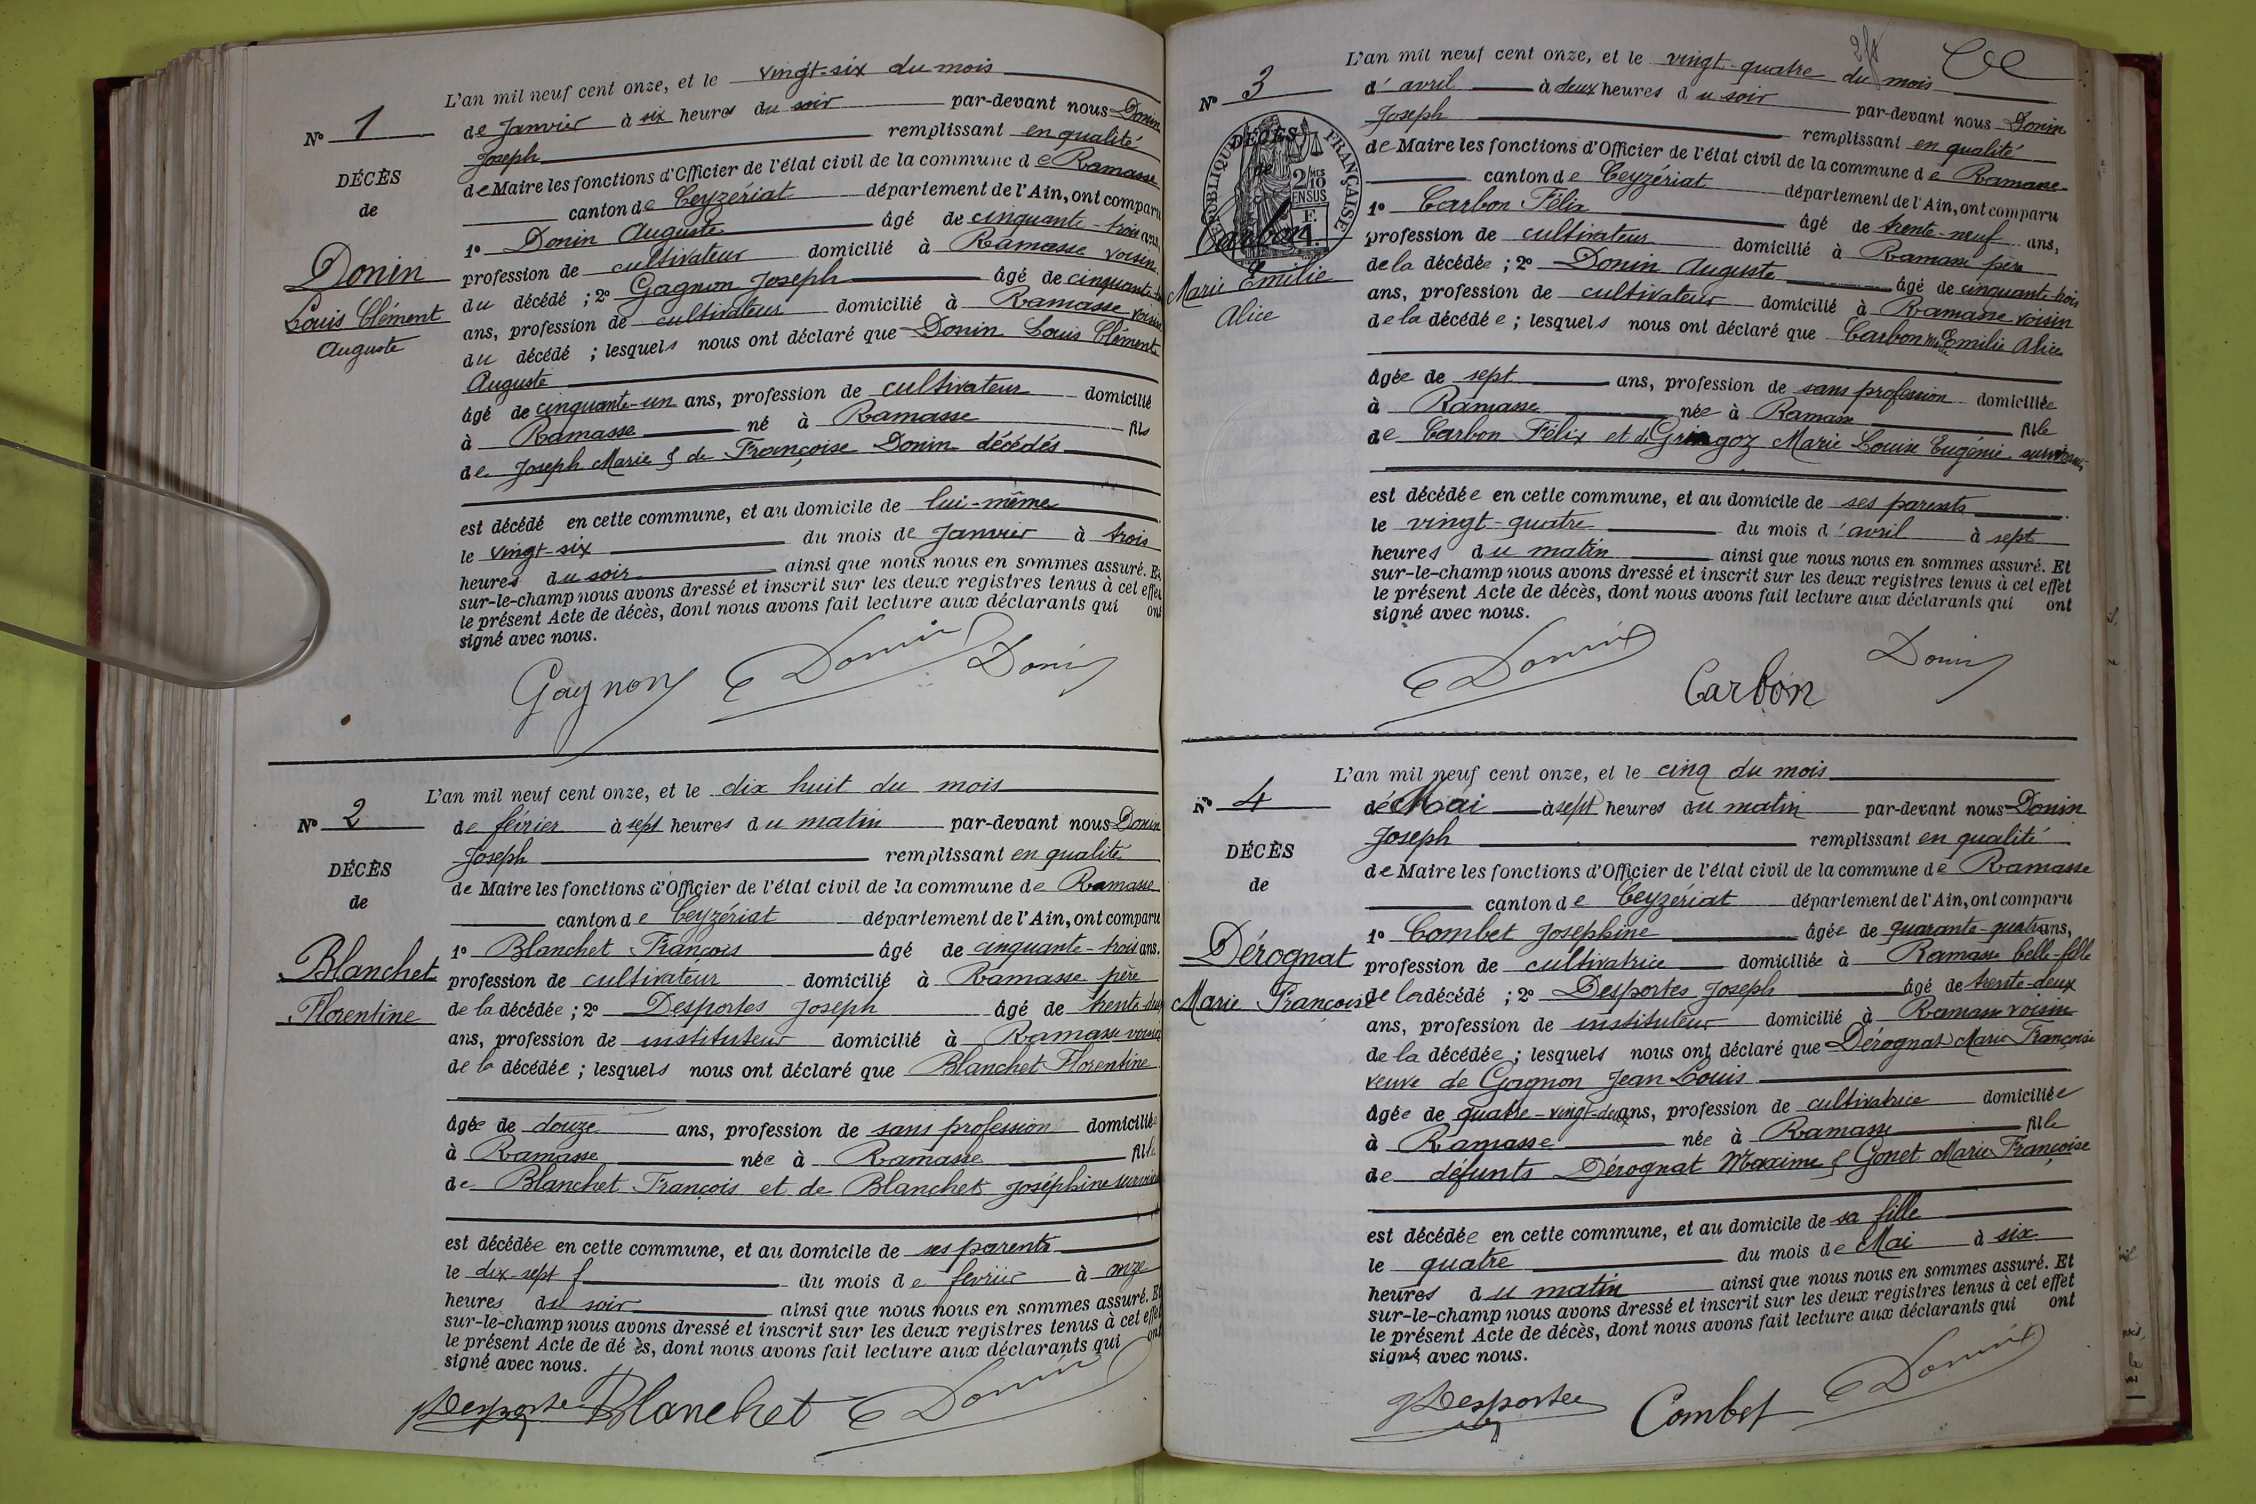 L'an mil neuf cent onze, et le vingt-six du mois
Nº 1
de Janvier à six heures du soir par-devant nous Donin
Joseph remplissant en qualité
DÉCÈS
de Maire les fonctions d'Officier de l'état civil de la commune de Ramasse
de
canton de Ceyzériat département de l'Ain, ont comparu
1º Donin Auguste âgé de cinquante-trois ans,
Donin
profession de cultivateur domicilié à Ramasse voisin
Louis Clément
du décédé ; 2º Gagnon Joseph âgé de cinquante
Auguste
ans, profession de cultivateur domicilié à Ramasse voisin
du décédé ; lesquels nous ont déclaré que Donin Louis Clément
Auguste
âgé de cinquante-un ans, profession de cultivateur domicilié
à Ramasse né à Ramasse fils
de Joseph Marie & de Françoise Donin décédés
est décédé en cette commune, et au domicile de lui-même
le vingt-six du mois de Janvier à trois
heures du soir ainsi que nous nous en sommes assuré. Et
sur-le-champ nous avons dressé et inscrit sur les deux registres tenus à cet effet
le présent Acte de décès, dont nous avons fait lecture aux déclarants qui ont
signé avec nous.
Gagnon Donin Donin
L'an mil neuf cent onze, et le dix huit du mois
Nº 2
de février à sept heures du matin par-devant nous Donin
Joseph remplissant en qualité
DÉCÈS
de Maire les fonctions d'Officier de l'état civil de la commune de Ramasse
de
canton de Ceyzériat département de l'Ain, ont comparu
1º Blanchet François âgé de cinquante-trois ans.
Blanchet
profession de cultivateur domicilié à Ramasse père
Florentine
de la décédée ; 2º Desportes Joseph âgé de trente-deux
ans, profession de instituteur domicilié à Ramasse voisin
de la décédée ; lesquels nous ont déclaré que Blanchet Florentine
âgée de douze ans, profession de sans profession domiciliée
à Ramasse née à Ramasse fille
de Blanchet François et de Blanchet Joséphine survivants
est décédée en cette commune, et au domicile de ses parents
le dix-sept du mois de février à onze
heures du soir ainsi que nous nous en sommes assuré. Et
sur-le-champ nous avons dressé et inscrit sur les deux registres tenus à cet effet
le présent Acte de dé ès, dont nous avons fait lecture aux déclarants qui ont
signé avec nous.
Desportes Blanchet Donin
L'an mil neuf cent onze, et le vingt-quatre du mois
Nº 3
d'avril à deux heures du soir par-devant nous Donin
Joseph remplissant en qualité
DÉCÈS
de
RÉPUBLIQUE FRANÇAISE
2/10
EN SUS
de Maire les fonctions d'Officier de l'état civil de la commune de Ramasse
canton de Ceyzériat département de l'Ain, ont comparu
1º Carbon Félix âgé de trente-neuf ans,
Carbon
profession de cultivateur domicilié à Ramasse père
Marie Emilie
Alice
de la décédée ; 2º Donin Auguste âgé de cinquante-trois
ans, profession de cultivateur domicilié à Ramasse voisin
de la décédée ; lesquels nous ont déclaré que Carbon Marie Emilie Alice
âgée de sept ans, profession de sans profession domiciliée
à Ramasse née à Ramasse fille
de Carbon Félix et de Gringoz Marie Louise Eugénie survivants
est décédée en cette commune, et au domicile de ses parents
le vingt-quatre du mois d'avril à sept
heures du matin ainsi que nous nous en sommes assuré. Et
sur-le-champ nous avons dressé et inscrit sur les deux registres tenus à cet effet
le présent Acte de décès, dont nous avons fait lecture aux déclarants qui ont
signé avec nous.
Donin Carbon Donin
L'an mil neuf cent onze, et le cinq du mois
Nº 4
de Mai à sept heures du matin par-devant nous Donin
Joseph remplissant en qualité
DÉCÈS
de Maire les fonctions d'Officier de l'état civil de la commune de Ramasse
de
canton de Ceyzériat département de l'Ain, ont comparu
1º Combet Joséphine âgée de quarante-quatre ans,
Dérognat
profession de cultivatrice domiciliée à Ramasse belle-fille
Marie Françoise
de la décédé ; 2º Desportes Joseph âgé de trente-deux
ans, profession de instituteur domicilié à Ramasse voisin
de la décédée ; lesquels nous ont déclaré que Dérognat Marie Françoise
veuve de Gagnon Jean Louis
âgée de quatre-vingt-deux ans, profession de cultivatrice domiciliée
à Ramasse née à Ramasse fille
de défunts Dérognat Maxime & Gonet Marie Françoise
est décédée en cette commune, et au domicile de sa fille
le quatre du mois de Mai à six
heures du matin ainsi que nous nous en sommes assuré. Et
sur-le-champ nous avons dressé et inscrit sur les deux registres tenus à cet effet
le présent Acte de décès, dont nous avons fait lecture aux déclarants qui ont
signé avec nous.
Desportes Combet Donin